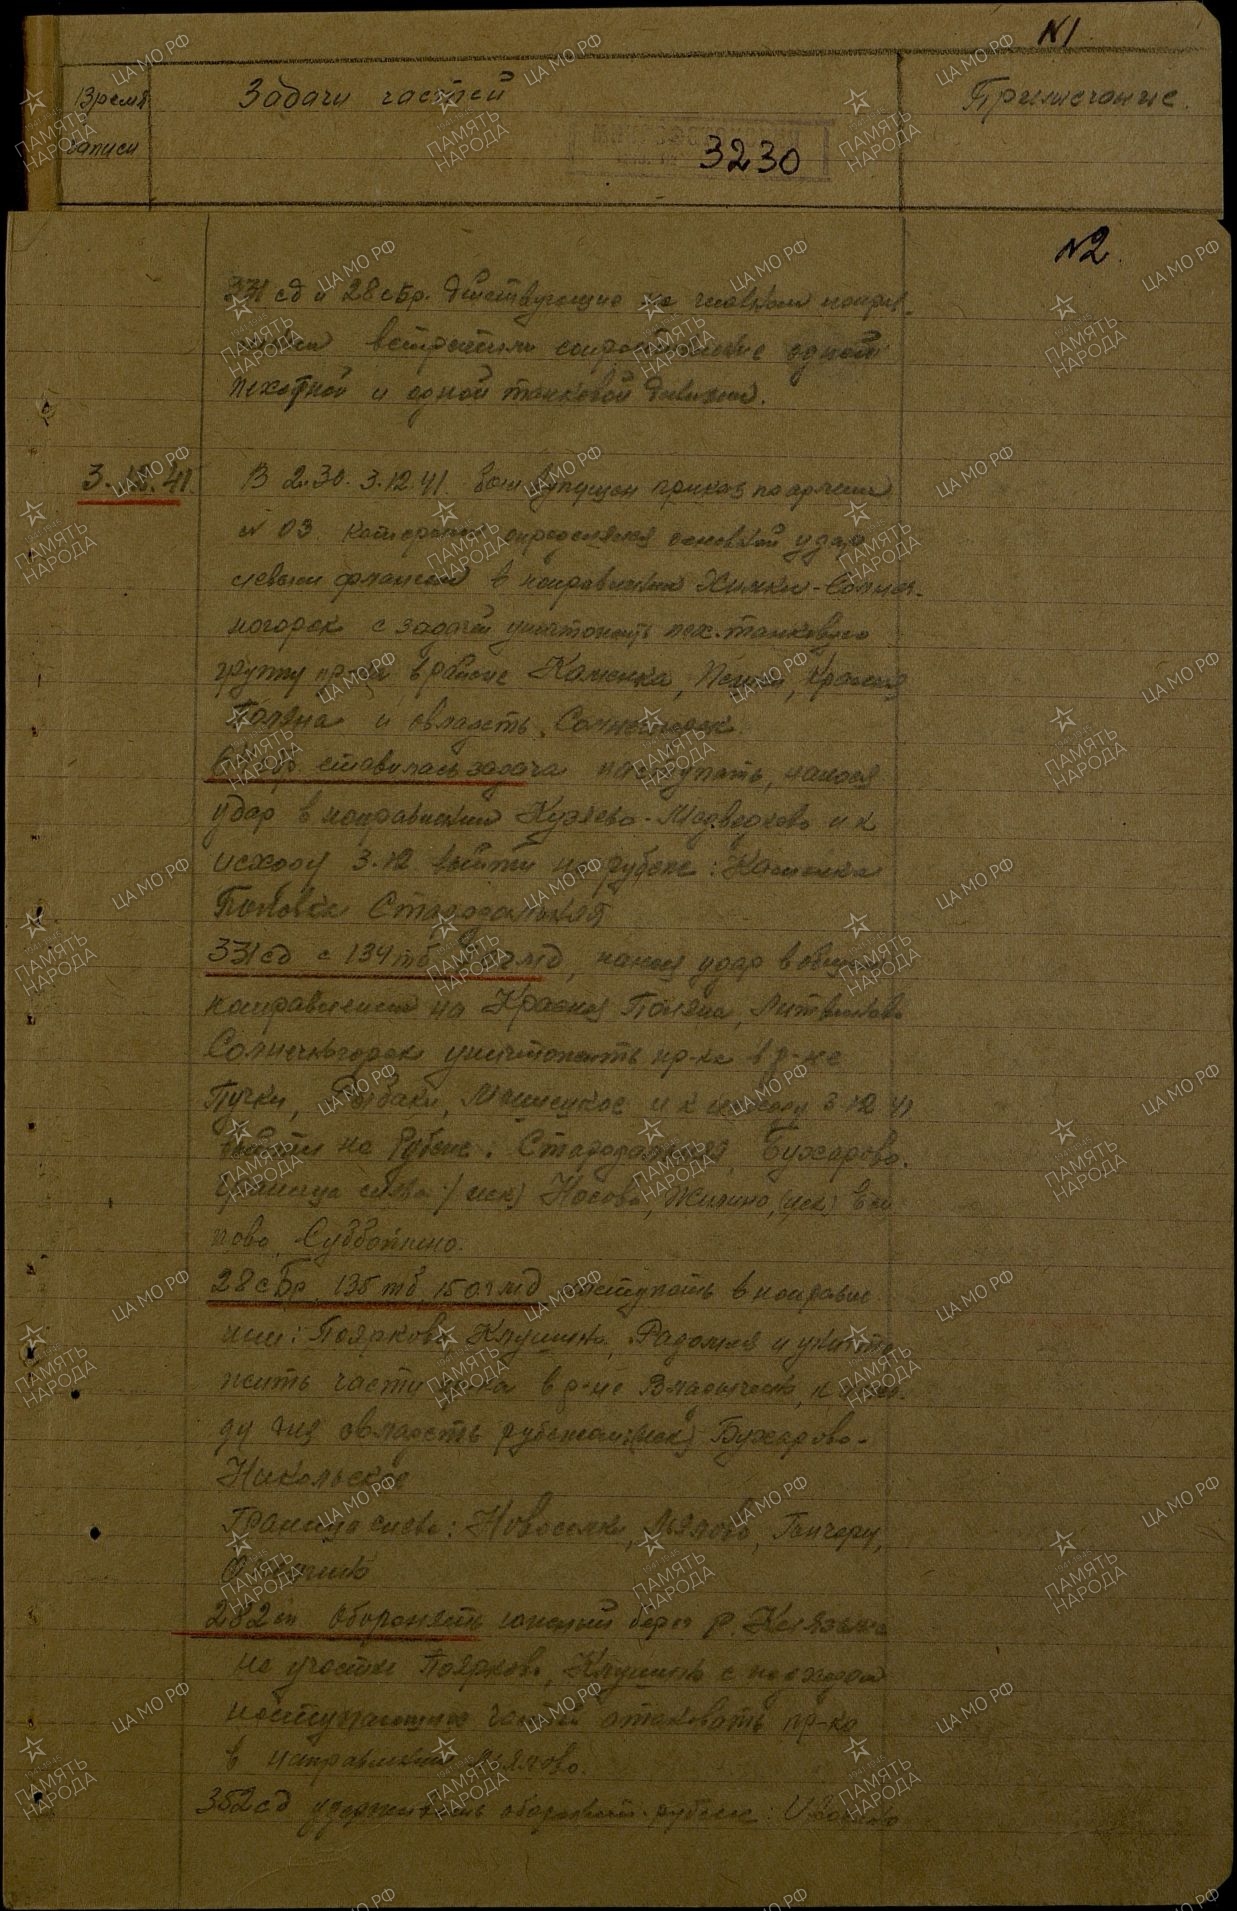 N1
Время
записи
Задачи частей
Примечание.
3230
N2.
331 сд и 28 сбр. действующие на главном направ-
лении встретили сопротивление одной
пехотной и одной танковой дивизии.
3.12.41.
В 2.30. 3.12.41. был выпущен приказ по армии
N 03. которым определялся основной удар
левым флангом в направлении Химки - Солнеч-
ногорск с задачей уничтожить пех. танковую
группу пр-ка в районе Каменка, Красная
Поляна и овладеть Солнечногорск.
ставилась задача наступать, нанося
удар в направлении Кузяево - Медведково и к
исходу 3.12 выйти на рубеже: Каменка
Поповка Стародальняя
331 сд с 134 тб нанося удар в общем
направлении на Красная Поляна, Литвиново
Солнечногорск уничтожить пр-ка в р-не
Пучки, Рыбаки, Мышецкое и к исходу 3.12.41
выйти на рубеже: Стародальняя, Бухарово.
Граница слева: /иск) Носово, Жилино, (иск)
пово, Субботино.
28 сбр, 135 тб, 15 огмд наступать в направле
нии: Поярково, Клушино, Радомля и уничто
жить части пр-ка в р-не Владычено, к исхо-
ду дня овладеть рубежом: (иск) Бухарово -
Никольское
Граница слева: Новоселки, Льялово,
282 сп оборонять южный берег р. Клязьма
на участке Поярково, Клушино с подходом
наступающих частей атаковать пр-ка
в направлении Льялово.
352 сд удерживать оборонит. рубеж:
ЦА МО РФ
ПАМЯТЬ
НАРОДА